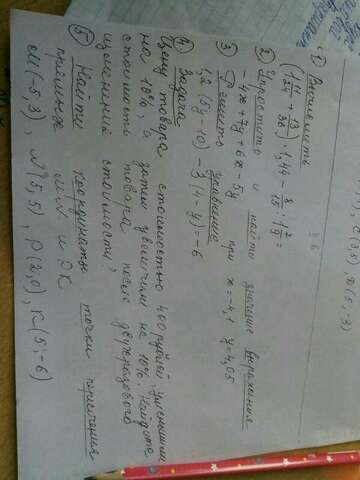 ① Вычислить
(1 11/24 + 13/36) · 1,44 - 8/15 · 1 7/9 =
② Упростить и найти значение выражения
-4x + 7y + 6x - 5y при x = -4,1 y = 4,05
③ Решить уравнение
1,2 (5y - 10) - 3 (4 - y) = -6
④ Задача
Цену товара стоимостью 400 рублей уменьшили
на 10%, а затем увеличили на 10%. Найдите
стоимость товара после двухразового
изменения стоимости?
⑤ Найти координаты точки пересечения
прямых MN и PK
M(-5;3) N(5;5), P(2;0), K(5;-6)